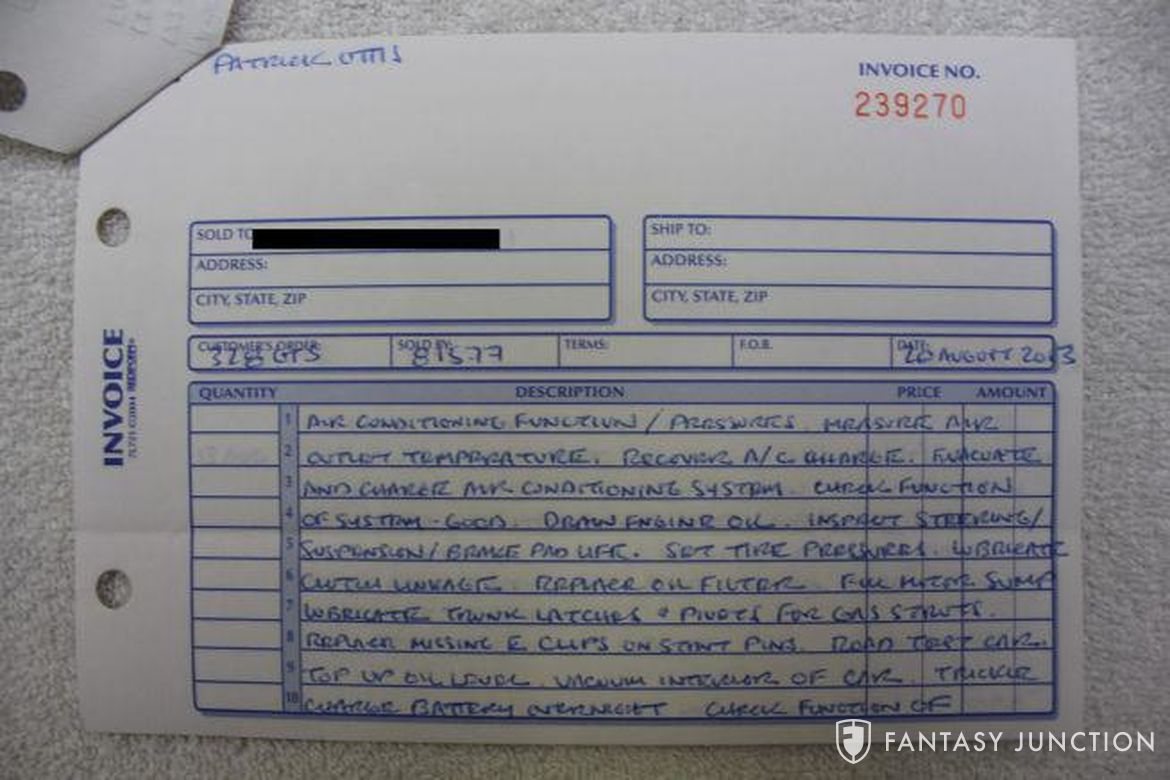 PATRICK OTTIS
INVOICE NO.
239270
SOLD TO
ADDRESS:
CITY, STATE, ZIP
SHIP TO:
ADDRESS:
CITY, STATE, ZIP
CUSTOMER'S ORDER:
328 GTS
SOLD BY:
81577
TERMS:
F.O.B.
DATE:
20 AUGUST 2013
INVOICE
QUANTITY DESCRIPTION PRICE AMOUNT
1 AIR CONDITIONING FUNCTION / PRESSURES. MEASURE AIR
2 OUTLET TEMPERATURE. RECOVER A/C CHARGE. EVACUATE
3 AND CHARGE AIR CONDITIONING SYSTEM. CHECK FUNCTION
4 OF SYSTEM - GOOD. DRAIN ENGINE OIL. INSPECT STEERING/
5 SUSPENSION/ BRAKE PAD LIFE. SET TIRE PRESSURES. LUBRICATE
6 CLUTCH LINKAGE. REPLACE OIL FILTER. FILL MOTOR SUMP
7 LUBRICATE TRUNK LATCHES & PIVOTS FOR GAS STRUTS.
8 REPLACE MISSING E CLIPS ON STRUT PINS. ROAD TEST CAR.
9 TOP UP OIL LEVEL. VACUUM INTERIOR OF CAR. TRICKLE
10 CHARGE BATTERY OVERNIGHT. CHECK FUNCTION OF
FANTASY JUNCTION